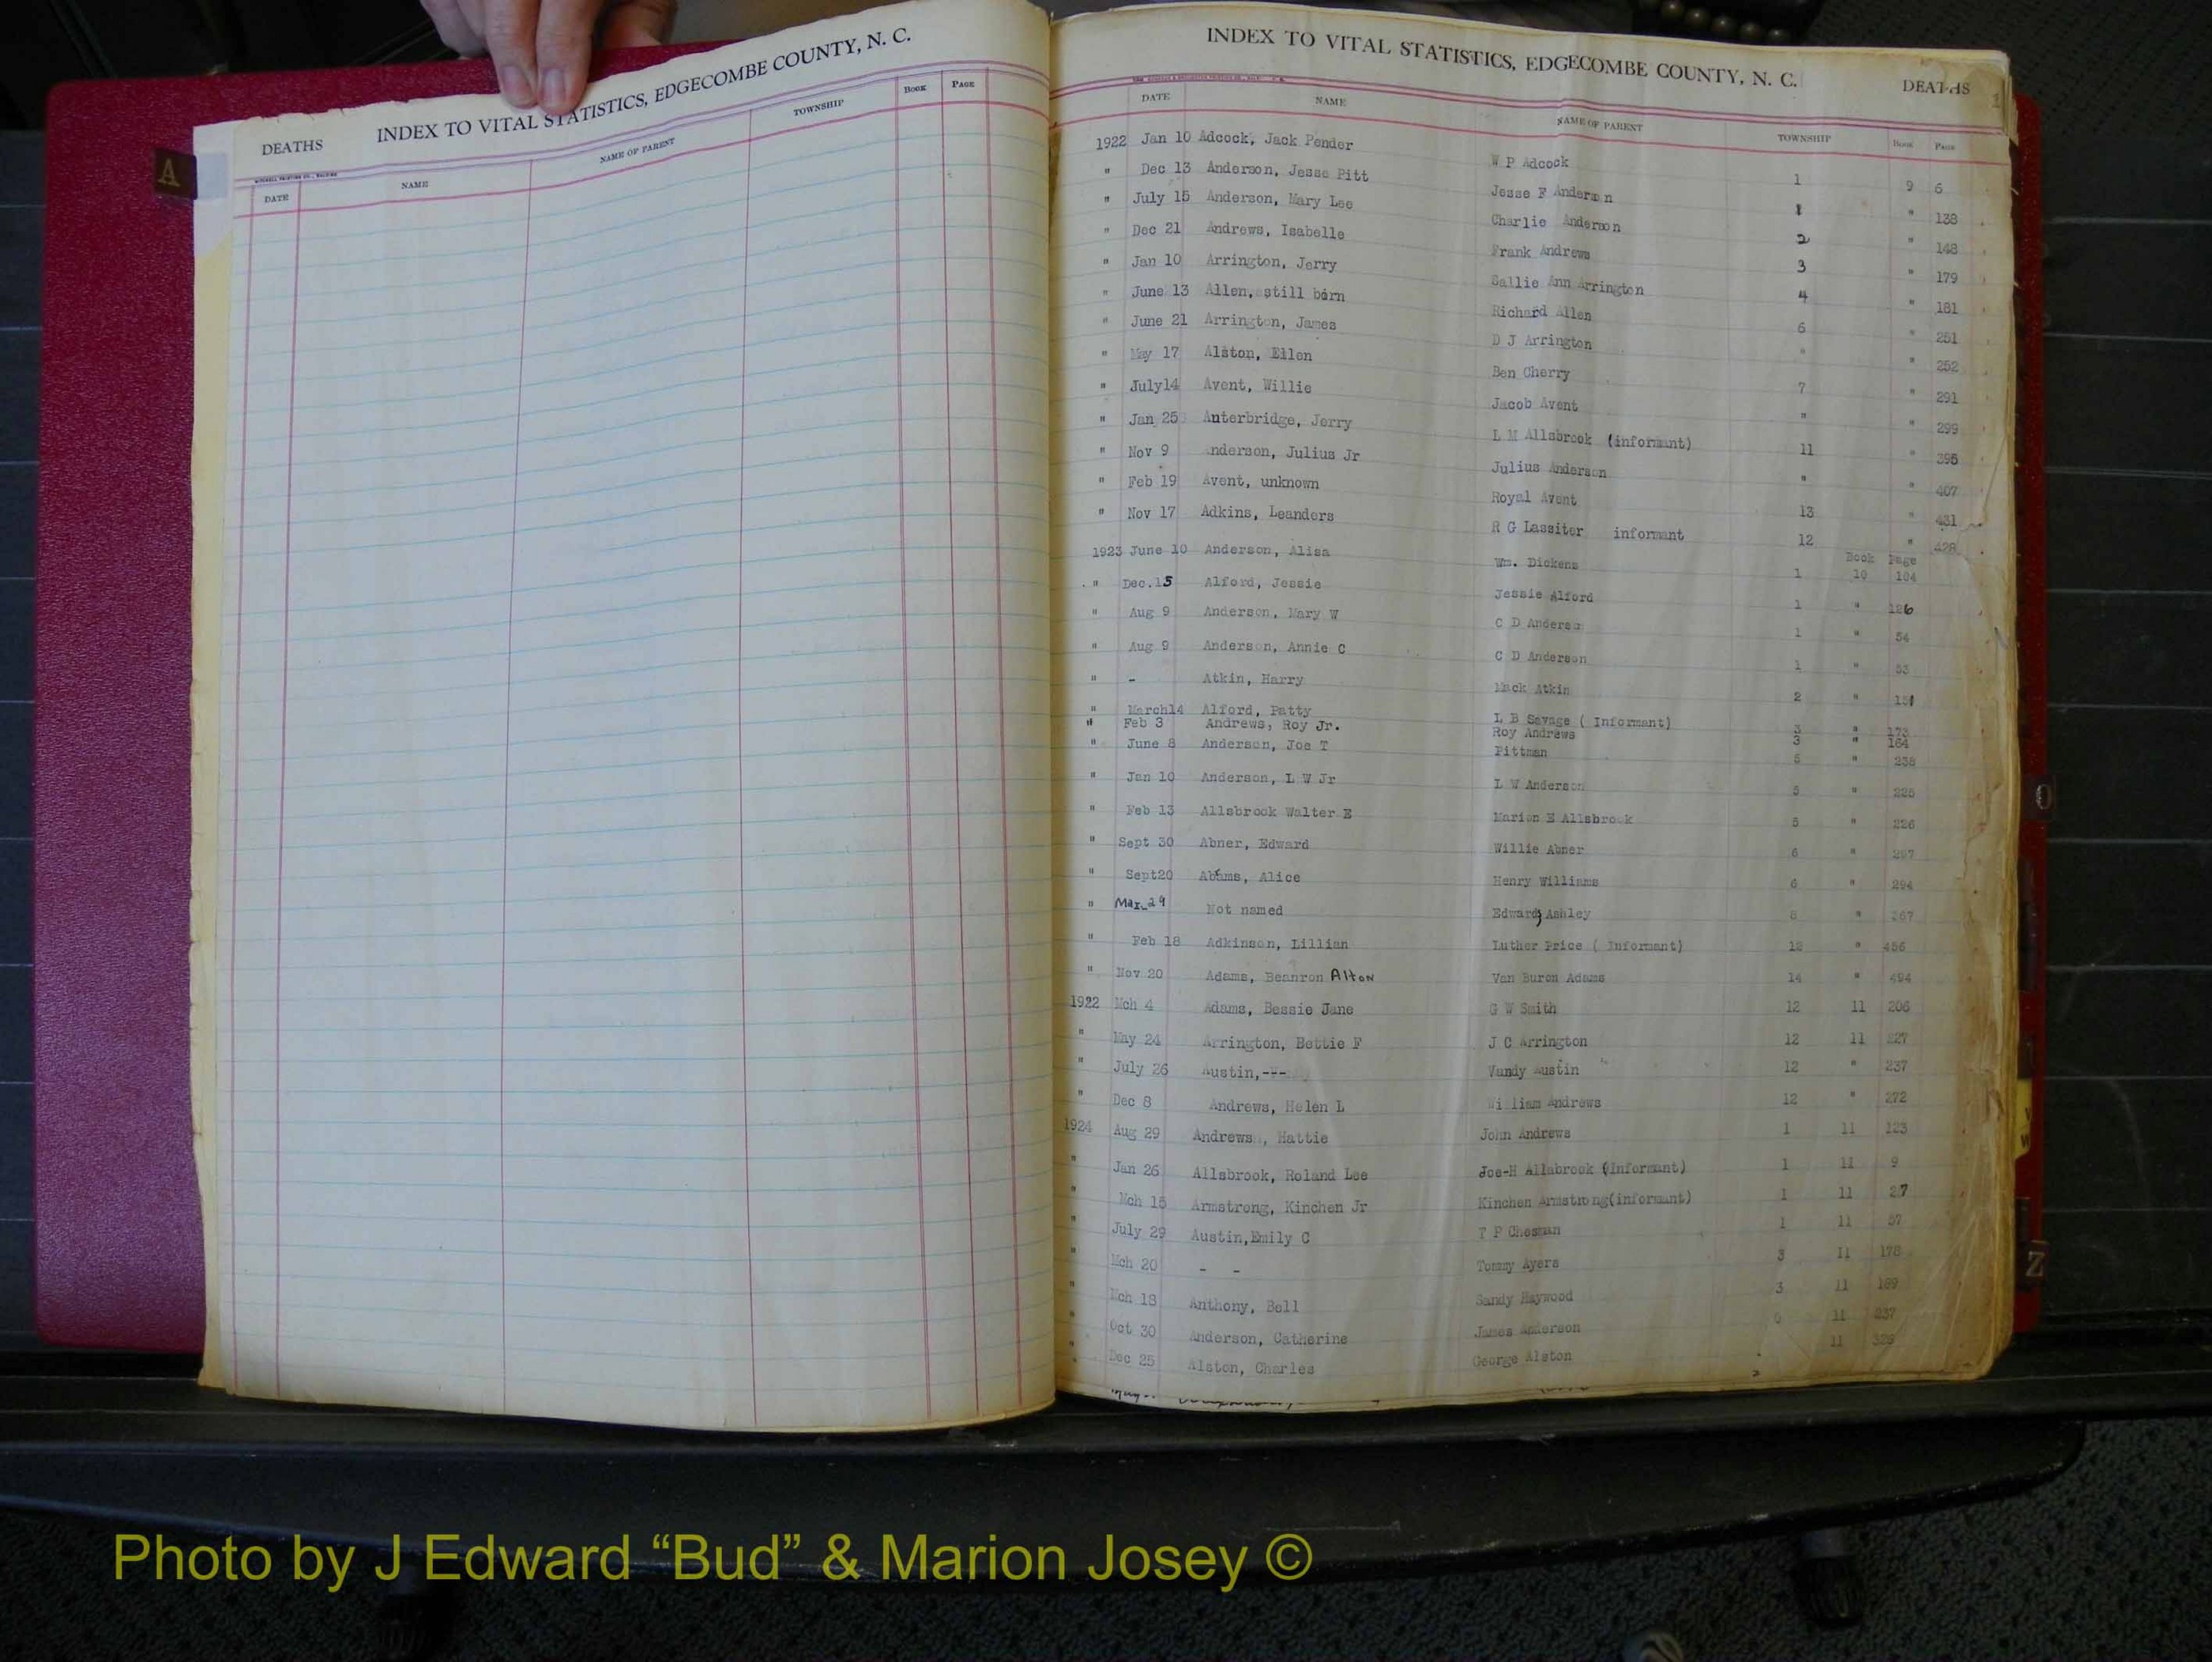 A
INDEX TO VITAL STATISTICS, EDGECOMBE COUNTY, N. C.
DEATHS
DATE NAME NAME OF PARENT TOWNSHIP BOOK PAGE
INDEX TO VITAL STATISTICS, EDGECOMBE COUNTY, N. C.
DEATHS
DATE NAME NAME OF PARENT TOWNSHIP BOOK PAGE
1922 Jan 10 Adcock, Jack Pender W P Adcock 1 9 6
" Dec 13 Anderson, Jesse Pitt Jesse F Anderson 1 " 138
" July 15 Anderson, Mary Lee Charlie Anderson 2 " 148
" Dec 21 Andrews, Isabelle Frank Andrews 3 " 179
" Jan 10 Arrington, Jerry Sallie Ann Arrington 4 " 181
" June 13 Allen, still born Richard Allen 6 " 251
" June 21 Arrington, James D J Arrington " " 252
" May 17 Alston, Ellen Ben Cherry 7 " 291
" July14 Avent, Willie Jacob Avent " " 299
" Jan 25 Auterbridge, Jerry L M Allsbrook (informant) 11 "
" Nov 9 Anderson, Julius Jr Julius Anderson " " 407
" Feb 19 Avent, unknown Royal Avent 13 " 431
" Nov 17 Adkins, Leanders R G Lassiter informant 12 " 428
Book Page
1923 June 10 Anderson, Alisa Wm. Dickens 1 10 104
" Dec.15 Alford, Jessie Jessie Alford 1 " 126
" Aug 9 Anderson, Mary W C D Anderson 1 " 54
" Aug 9 Anderson, Annie C C D Anderson 1 " 53
" - Atkin, Harry Mack Atkin 2 " 151
" March14 Alford, Patty L B Savage ( Informant) 3 " 173
" Feb 3 Andrews, Roy Jr. Roy Andrews 3 " 164
" June 8 Anderson, Joe T Pittman 5 " 238
" Jan 10 Anderson, L W Jr L W Anderson 5 " 225
" Feb 13 Allsbrook Walter E Marion E Allsbrook 5 " 226
" Sept 30 Abner, Edward Willie Abner 6 " 297
" Sept20 Abams, Alice Henry Williams 6 " 294
" Mar. 29 Not named Edward Ashley 6 " 267
" Feb 18 Adkinson, Lillian Luther Price ( Informant) 12 " 456
" Nov 20 Adams, Beanron Alton Van Buron Adams 14 " 494
1922 Mch 4 Adams, Bessie Jane G W Smith 12 11 206
" May 24 Arrington, Bettie F J C Arrington 12 11 227
" July 26 Austin,--- Vandy Austin 12 " 237
" Dec 8 Andrews, Helen L William Andrews 12 " 272
1924 Aug 29 Andrews, Hattie John Andrews 1 11 123
" Jan 26 Allsbrook, Roland Lee Joe-H Allsbrook (Informant) 1 11 9
" Mch 15 Armstrong, Kinchen Jr Kinchen Armstrong(informant) 1 11 27
" July 29 Austin,Emily C T P Chesman 1 11 57
" Mch 20 - - Tommy Ayers 3 11 178
" Mch 18 Anthony, Bell Sandy Haywood 3 11 189
" Oct 30 Anderson, Catherine James Anderson 6 11 237
" Dec 25 Alston, Charles George Alston 11
Z
Photo by J Edward “Bud” & Marion Josey ©